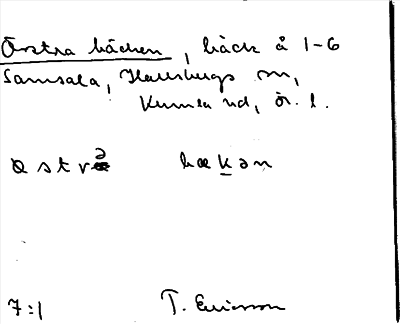 Östra bäcken, bäck å 1-6
Samsala, Hallsbergs sn,
Kumla hd, Ör. l.
östrə bækən
7:1 T. Ericsson